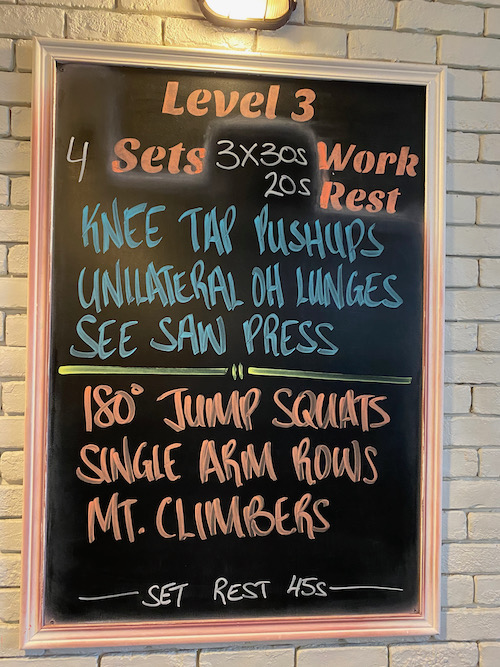 Level 3
4 Sets 3X30s Work
20s Rest
KNEE TAP PUSHUPS
UNILATERAL OH LUNGES
SEE SAW PRESS
180° JUMP SQUATS
SINGLE ARM ROWS
MT. CLIMBERS
SET REST 45s